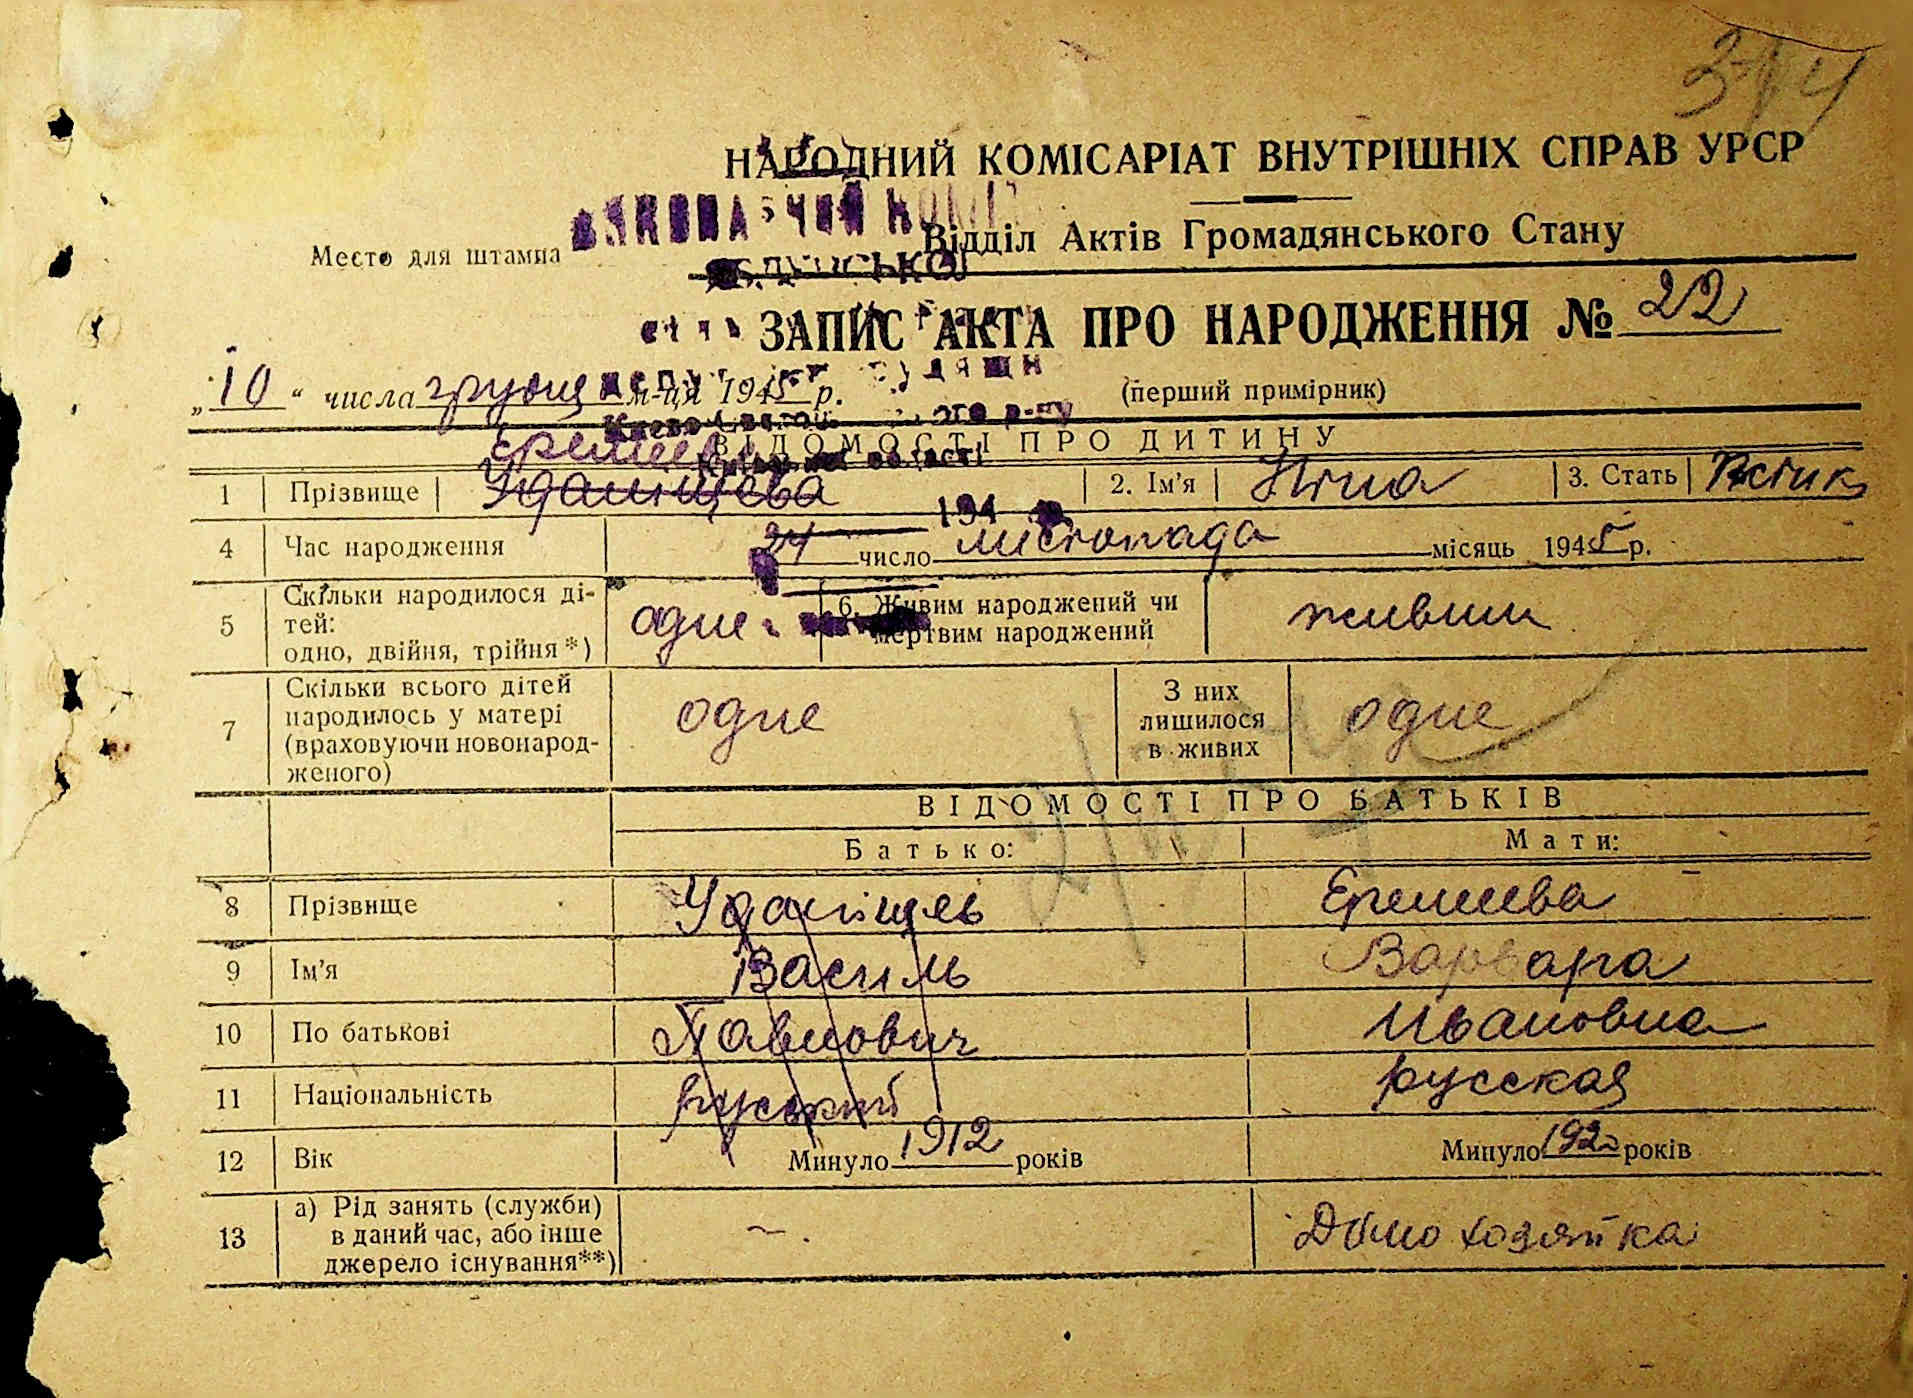 НАРОДНИЙ КОМІСАРІАТ ВНУТРІШНІХ СПРАВ УРСР
Відділ Актів Громадянського Стану
Место для штампа
ЗАПИС АКТА ПРО НАРОДЖЕННЯ № 22
„10“ числа грудня м-ця 1945 р. (перший примірник)
ВІДОМОСТІ ПРО ДИТИНУ
1 Прізвище 2. Ім'я Ніна 3. Стать
4 Час народження 24 число листопада місяць 1945 р.
5 Скільки народилося ді-
тей:
одно, двійня, трійня*) одне 6. Живим народжений чи
мертвим народжений живим
7 Скільки всього дітей
народилось у матері
(враховуючи новонарод-
женого) одне З них
лишилося
в живих одне
ВІДОМОСТІ ПРО БАТЬКІВ
Батько: Мати:
8 Прізвище
9 Ім'я Василь Варвара
10 По батькові Павлович Ивановна
11 Національність руський русская
12 Вік Минуло 1912 років Минуло років
13 а) Рід занять (служби)
в даний час, або інше
джерело існування**) Домохозяйка